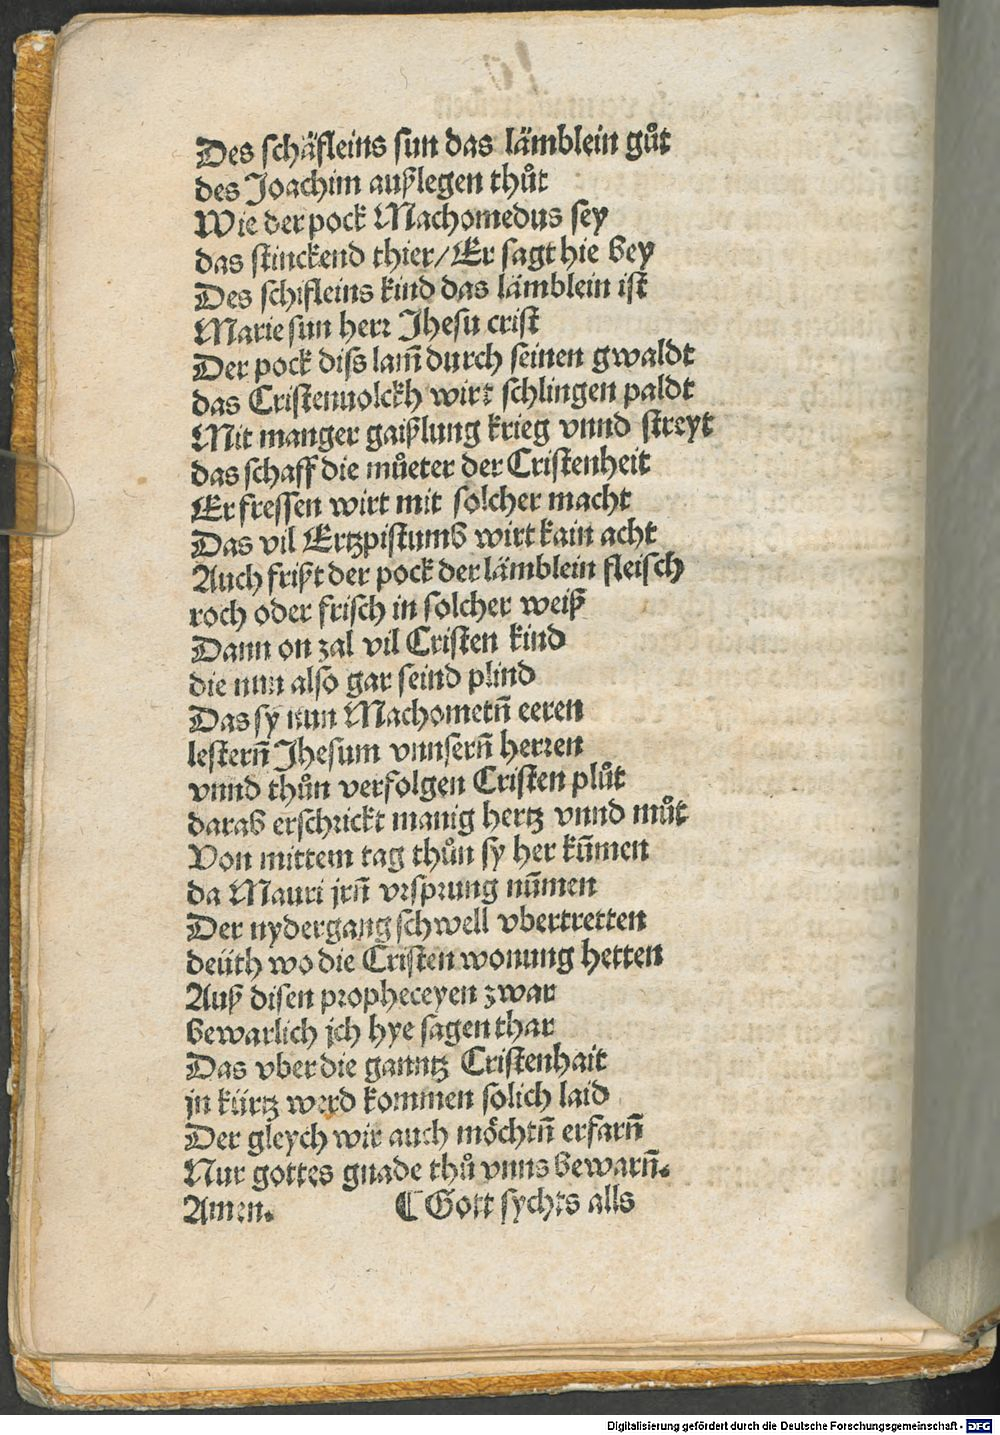 Des schäfleins sun das lämblein gůt
des Joachim außlegen thůt
Wie der pock Machomedus sey
das stinckend thier/Er sagt hie bey
Des schifleins kind das lämblein ist
Marie sun herr Jhesu crist
Der pock diss lam̃ durch seinen gwaldt
das Cristenuolckh wirt schlingen paldt
Mit manger gaißlung krieg vnnd streyt
das schaff die můeter der Cristenheit
Er fressen wirt mit solcher macht
Das vil Ertzpistumb wirt kain acht
Auch frißt der pock der lämblein fleisch
roch oder frisch in solcher weiß
Dann on zal vil Cristen kind
die nun also gar seind plind
Das sy nun Machometñ eeren
lesterñ Jhesum vnnserñ herren
vnnd thůn verfolgen Cristen plůt
darab erschrickt manig hertz vnnd můt
Von mittem tag thůn sy her kũmen
da Mauri jrñ vrsprung nũmen
Der nydergang schwell vbertretten
deüth wo die Cristen wonung hetten
Auß disen propheceyen zwar
bewarlich jch hye sagen thar
Das vber die ganntz Cristenhait
jn kürtz werd kommen solich laid
Der gleych wir auch möchtñ erfarñ
Nur gottes gnade thů vnns bewarñ.
Amen. ⸿ Gott sychts alls
Digitalisierung gefördert durch die Deutsche Forschungsgemeinschaft - DFG